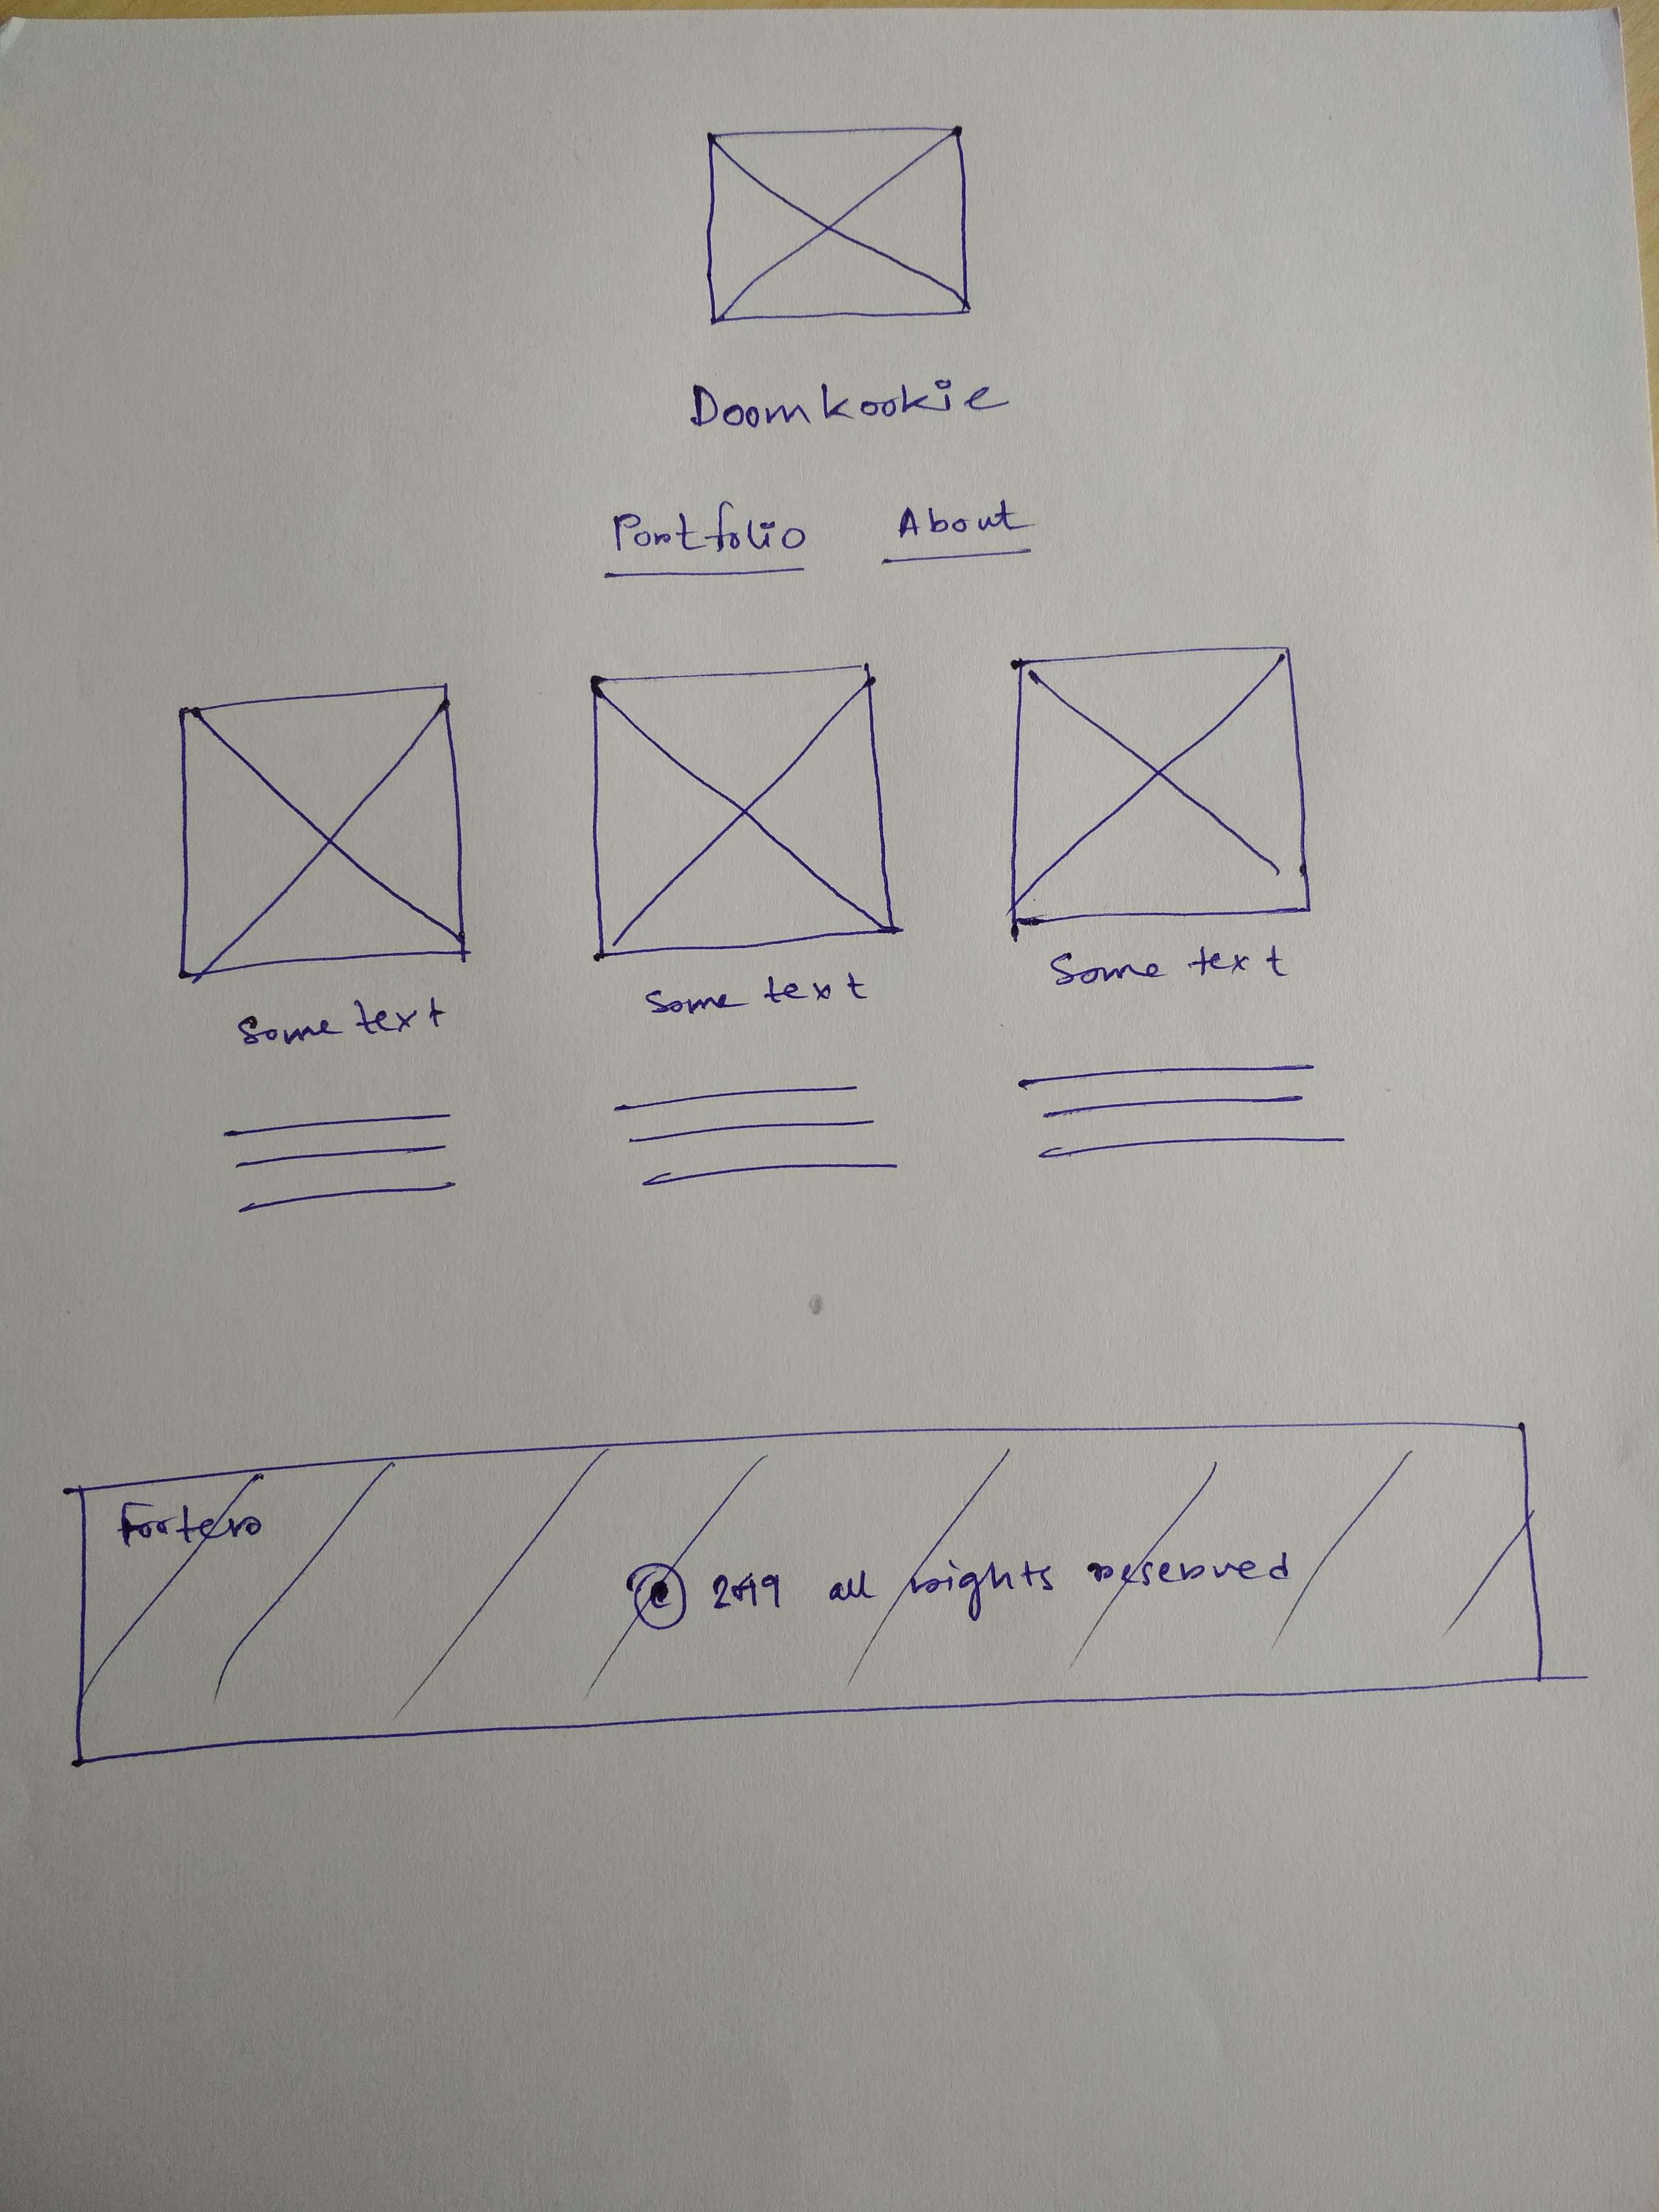 Doomkookie
Portfolio About
Some text Some text Some text
Footer
© 2019 all rights reserved